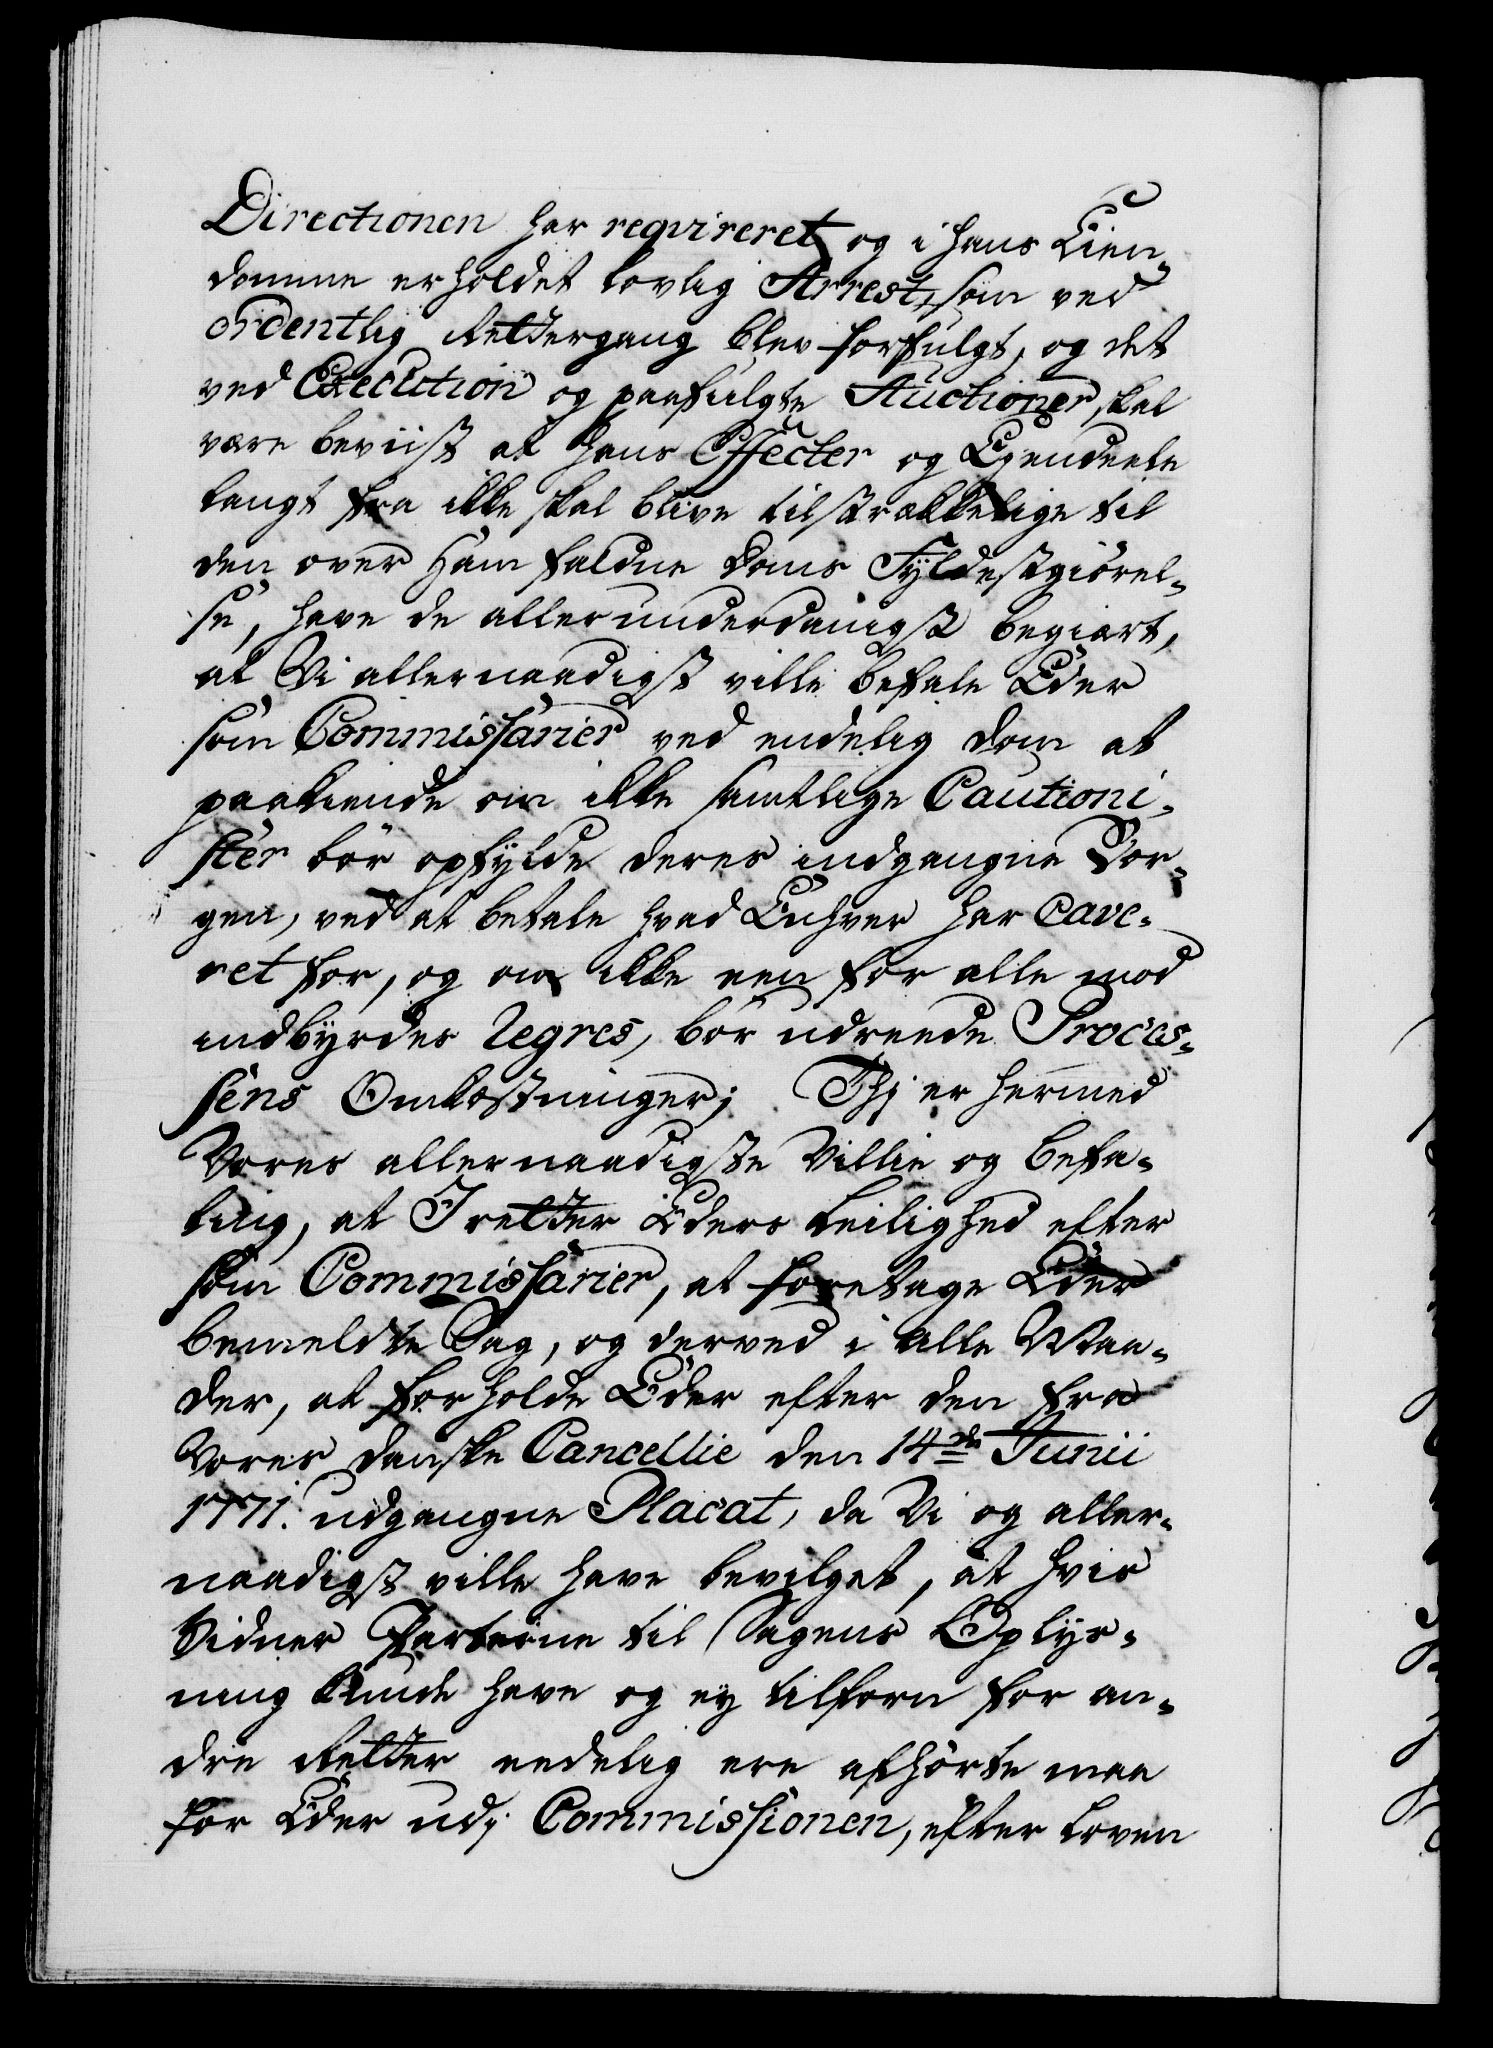 Directionen har reqvireret og i hans Eien-
domme erholdet lovlig Arrest, som ved
ordentlig Rettergang blev forfulgt, og det
ved Execution og paafulgte Auctioner skal
være beviist at hans Effecter og Ejendeele
langt fra ikke skal blive tilstrækkelige til
den over Ham faldne Doms Fyldestgiörel-
se, have de allerunderdanigst begiært,
at Vi allernaadigst ville befale Eder
som Commissarier ved endelig Dom at
paakiende om ikke samtlige Cautioni-
ster bör opfylde deres indgangne For-
gen, ved at betale hvad Enhver har cave-
ret for, og om ikke een for alle mod
indbyrdes Regres, bör udreede Proces-
sens Omkostninger; Thj er hermed
Vores allernaadigste Villie og Befa-
ling, at I retter Eders Leilighed efter
som Commissarier, at foretage Eder
bemeldte Sag, og derved i alle Maa-
der, at forholde Eder efter den fra
Vores danske Cancellie den 14de Junii
1771. udgangne Placat, da Vi og aller-
naadigst ville have bevilget, at hvis
Vidner Parterne til Sagens Oplys-
ning kunde have og ej tilforn for an-
dre Retter eedelig ere afhörte maa
for Eder udj Commissionen, efter Loven